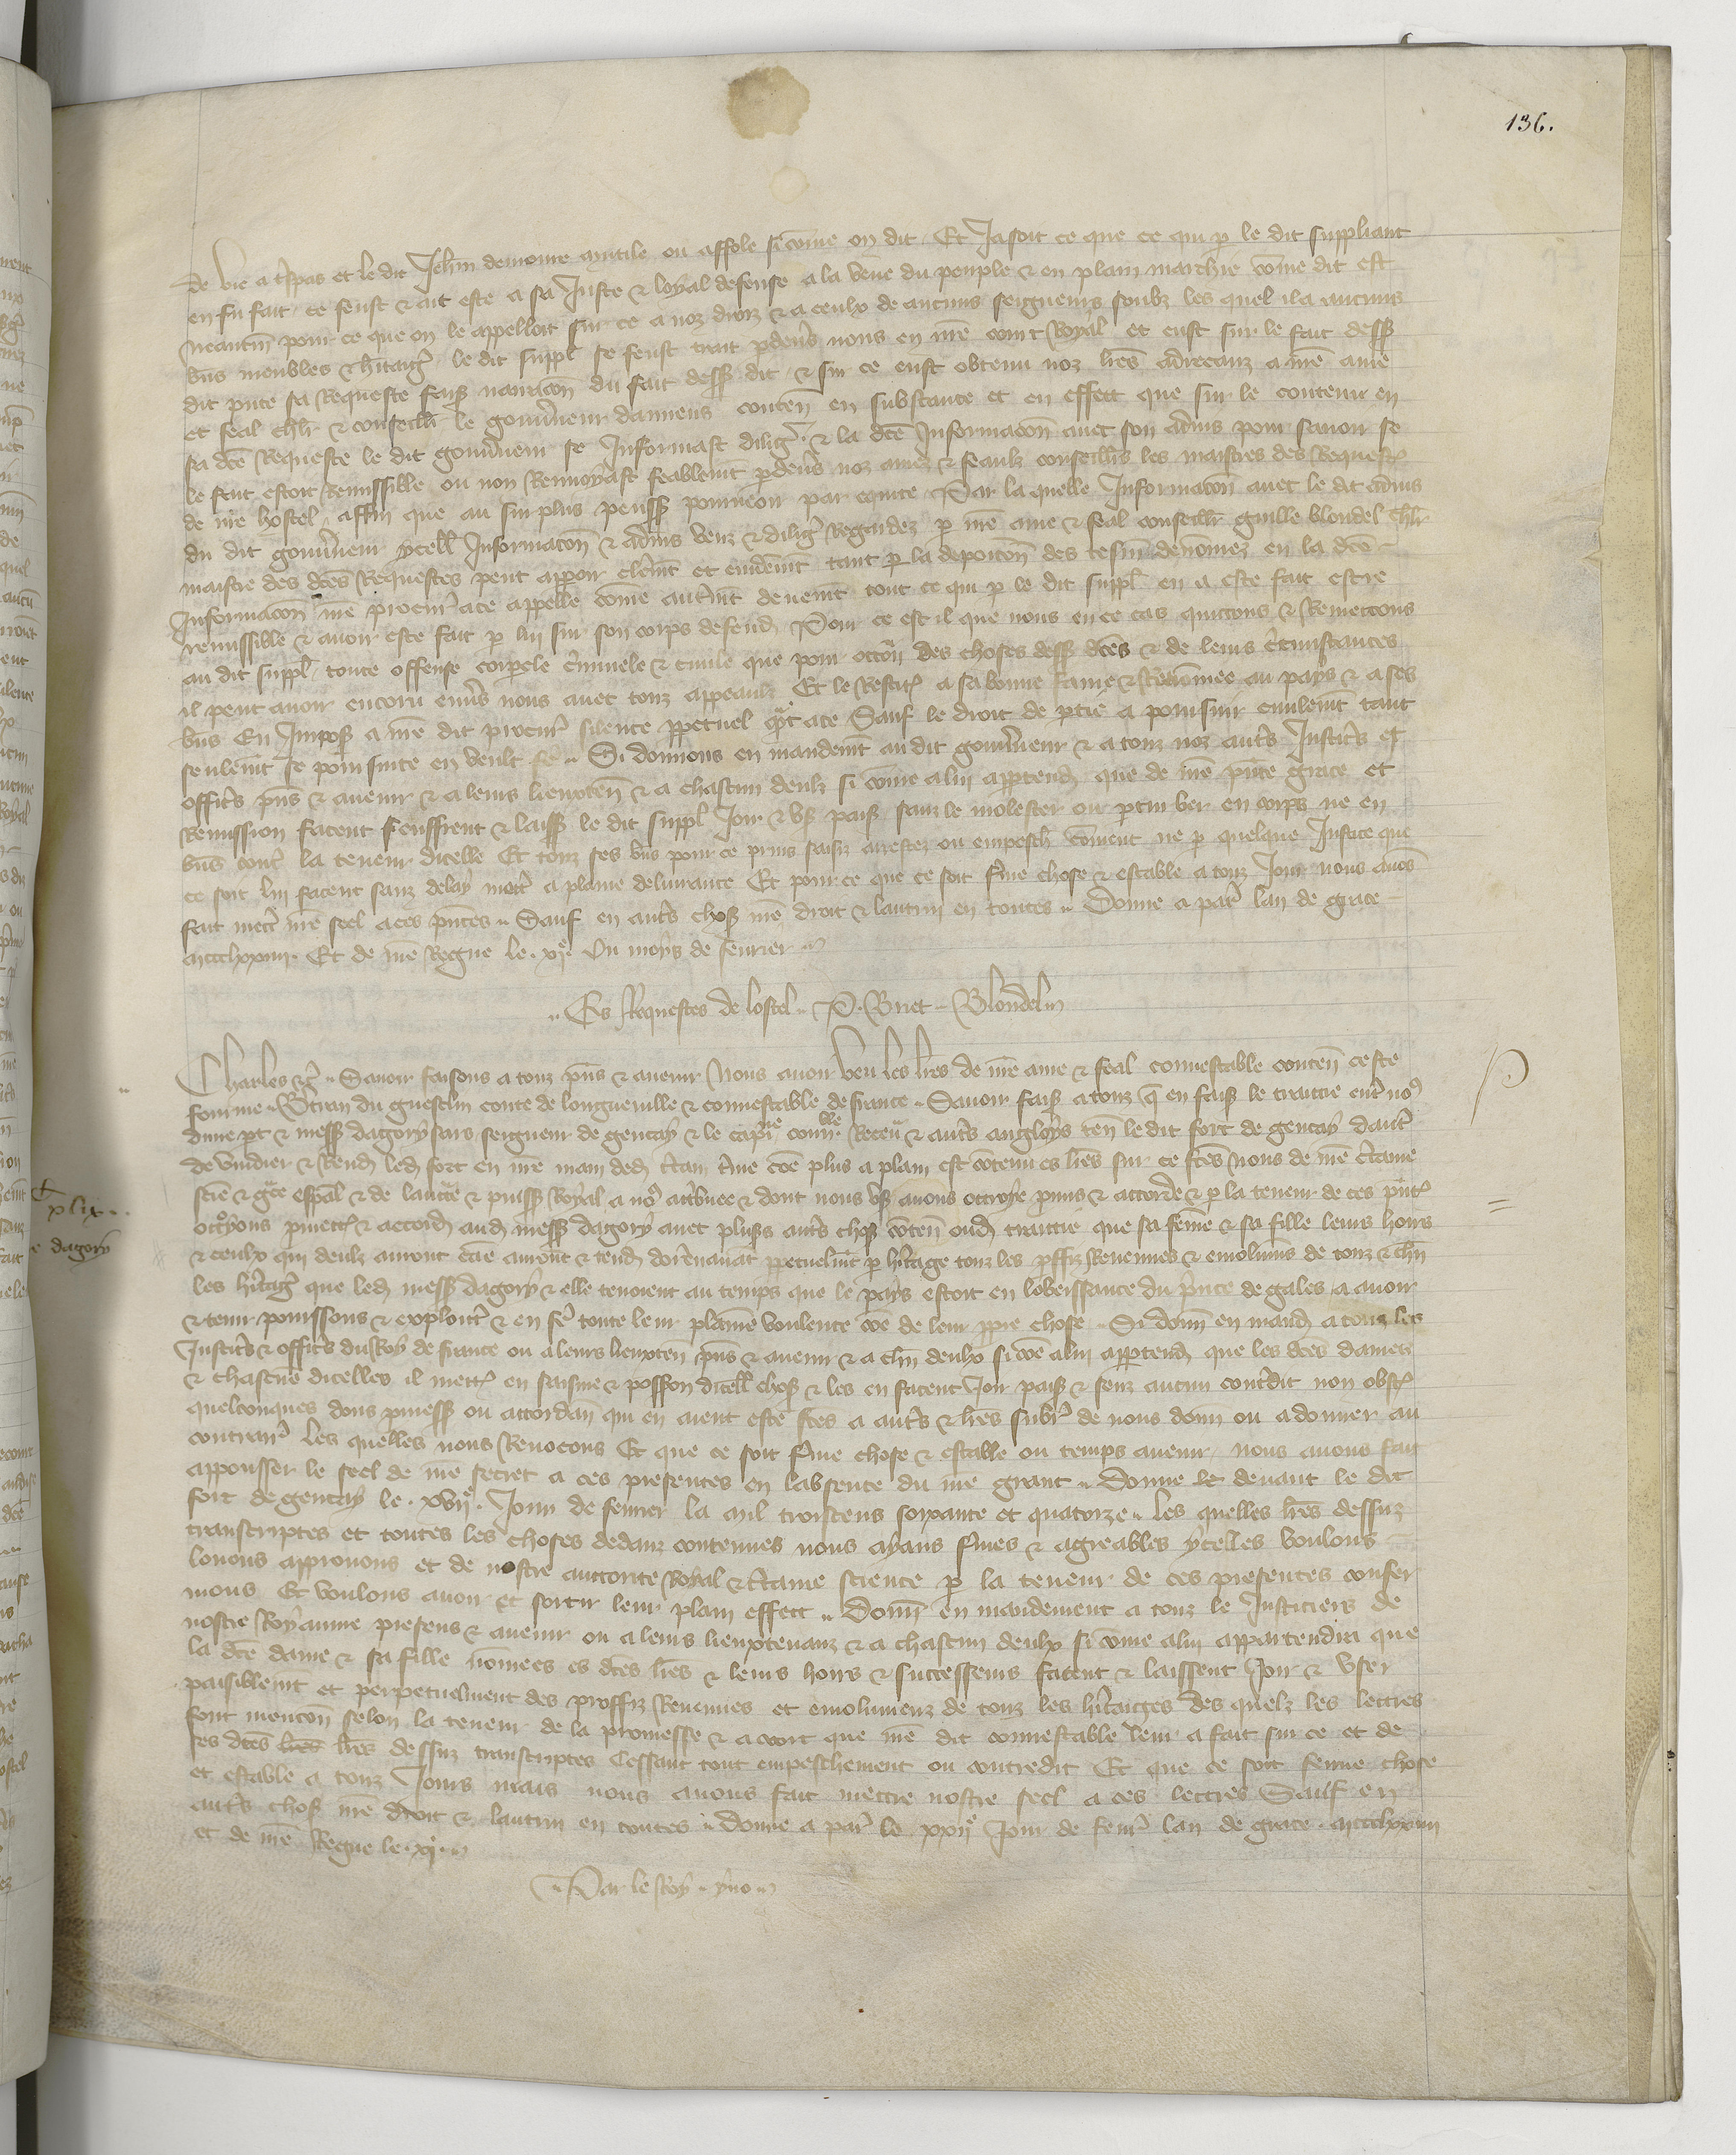 136.
de vie a t̃spas et le dit Jeh̃n demoure mutile ou affole si cõme on dit Et Jasoit ce que ce qui p̱ le dit suppliant
en fu fait ce feust & ait este a sa Juste & loyal defense a la veue du peuple & en plain marchie cõme dit est
neantm̃ pour ce que on le appelloit sur ce a noz droiz & a ceulx de aucuns seigneurs soubz les quel il a aucuns
biẽs meubles & hitaig̃ le dit suppl̃ se feust trait p̱deũs nous en nr̃e court Royal et eust sur le fait dess9
dit p̃nte sa Requeste fais9 narracõn du fait dess9 dit & sur ce eust obtenu noz lr̃es adrecans a nr̃e ame
et feal chlr̃ & conseill̃r le gouv̾neur damiens conteñ en substance et en effect que sur le contenu en
sa dc̃e Requeste le dit gouv̾neur se Informast dilig̃ & la dc̃e Informacõn avec son adũis pour savoir se
le fait estoit Remissible ou non Renvoyast feablem̃t p̱deũs noz amez & feaulx conseill̃rs les maistres des Request̃
de nr̃e hostel affin que au surplus peuss9 pourveoir par comite Par la quelle Informacõn avec le dit adũis
du dit gouv̾neur ycell̃ Informacõn & adũis veuz & dilig̃ Regardez p̱ nr̃e ame & feal conseill̃r guille blondel chlr̃
maistre des dc̃es Requestes peut apparoir clerem̃t et euidem̃t tant p̱ la deposicõn des tesm̃ denõmez en la dc̃e
Informacõn nr̃e procur̃ a ce appelle cõme autrem̃t deuem̃t tout ce qui p̱ le dit suppl̃ en a este fait estre
remissible & avoir este fait p̱ lui sur son corps defend9 Pour ce est il que nous en ce cas quictons & Remectons
au dit suppl̃ toute offense corporele c̃minele & civile que pour occõn des choses dess9 dc̃es & de leurs c̃cunstances
il peut avoir encoru ẽnũs nous avec touz appeaulx Et le Restit̃ a sa bonne fame & Renõmee au pays & a ses
biẽs En Impos9 a nr̃e dit procur̃ silence p̱petuel q̃nt a ce Sauf le droit de p̱tie a poursuir civilem̃t tant
seulem̃t se poursuite en veult fẽ Si donnons en mandem̃t au dit gouv̾neur & a touz noz autr̃s Justic̃rs et
offic̃rs p̃ns & avenir & a leurs lieuxteñ & a chascun deulx si cõme a lui app̱tend9 que de nr̃e p̃nte grace et
Remission facent seuffrent & laiss9 le dit suppl̃ Joir & us9 paiss9 sanz le molester ou p̱tur ber en corps ne en
biẽs contr̃ la teneur dicelle Et touz ses biẽs pour ce prins saisiz arrestez ou empesch̃ cõment ne p̱ quelque Justice que
ce soit lui facent sanz delay mectr̃ a plaine delivrance Et pour ce que ce soit ferme chose & estable a touz Jours nous avõs
fait mectr̃ nr̃e seel a ces p̃ntes Sauf en autr̃s chos9 nr̃e droit & lautrui en toutes Donne a par̃ lan de grace
mccclxxiiii Et de nr̃e Regne le xie Ou moys de fevrier
Es Requestes de lostel P. Briet Blondel
Charles &c̃ Savoir faisons a touz p̃ns & avenir Nous avoir veu les lr̃es de nr̃e ame & feal connestable conteñ ceste
fourme Bt̃ran du guesclin conte de longueville & connestable de france Savoir fais9 a touz q̃ en fais9 le traittie ent̃r no9
dune p̱t & mess9 dagory sais seigneur de gencay & le cap̱ne cour̃ble Receũ & autr̃s angloys teñ le dit fort de gencay daut̃r
de vuidier & Rend9 led9 fort en nr̃e main ded9 c̃tain t̃me cõe plus a plain est contenu es lr̃es sur ce fc̃es Nous de nr̃e c̃taine
scie & g̃ce esp̃al & de lauct̃e & puiss9 Royal a no9 at̃buee & dont nous us9 avons ottroye promis & accorde & p̱ la teneur de ces p̃nt̃
ottroyons promett̃ & accord9 aud9 mess9 dagory avec plus9s autr̃s chos9 cõteñ oud9 traittie que sa fem̃e & sa fille leurs hoirs
& ceulx qui deulx auront cãe auront & tend9 dorenavant p̱petuelm̃t p̱ hitage touz les p̱ffiz Revenues & emolum̃s de touz & chñ
les hitag̃ que led9 mess9 dagory & elle tenoient au temps que le pays estoit en lobeissance du prince de gales a avoir
& tenir pourssons & exploict̃ & en fẽ toute leur plainẽ voulente cõe de leur p̱pre chose Si doñn en mand9 a touz les
Justic̃rs & offic̃rs du Roy de france ou a leurs lieuxteñ p̃ns & avenir & a chñ deulx si cõe a lui app̱tend9 que les dc̃es dames
& chascune dicelles il mett̃ en saisine & possõn dicell̃ chos9 & les en facent Joir paiss9 & senz aucun contredit non obst̃
quelconques dons promess9 ou accordan̄ qui en aient este fc̃es a autr̃s & lr̃es subr̃ de nous donñ ou a donner au
contrair̃ Les quelles nous Revocons Et que ce soit ferme chose & estable ou temps avenir nous avons fait
appousser le seel de nr̃e secret a ces presentes en labsence du nr̃e grant Donne le devant le dit
fort de gencay le xviie Jour de fevrier la mil troiscens soixante et quatorze Les quelles lr̃es dessuz
transcriptes et toutes les choses dedanz contenues nous ayans fermes & agreables ycelles voulons
louons approuvons et de nostre auctorite Royal & c̃taine science p̱ la teneur de ces presentes confer
mons Et voulons avoir et sortir leur plain effect Donñ en mandement a touz le Justiciers de
nostre Royaume presens & avenir ou a leurs lieuxtenanz & a chascun deulx si cõme a lui appartendra que
la dc̃e dame & sa fille nõmees es dc̃es lr̃es & leurs hoirs & successeurs facent & laissent Joir & user
paisiblem̃t et perpetuelment des proffiz Revenues et emolumenz de touz les hitaiges des quelz les lettres
font mencõn selon la teneur de la promesse & acort que nr̃e dit connestable leur a fait sur ce et de
ses dc̃es lr̃es lr̃es dessuz transcriptes Cessant tout empeschement ou contredit Et que ce soit ferme chose
et estable a touz Jours mais nous avons fait mettre nostre seel a ces lettres Sauf en
autr̃s chos9 nr̃e droit & lautrui en toutes Donne a par̃ le xxiie Jour de fevr̃ lan de grace mccclxxiiii
et de nr̃e Regne le xie
Par le Roy yvo